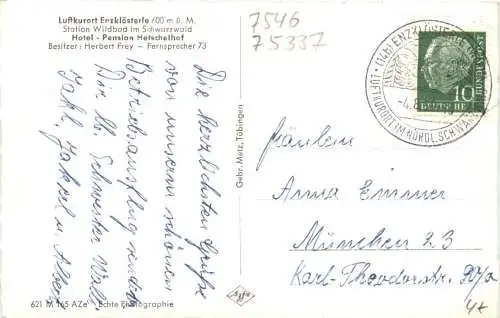 Luftkurort Enzklösterle 600 m ü. M.
Station Wildbad im Schwarzwald
Hotel - Pension Hetschelhof
Besitzer: Herbert Frey — Fernsprecher 73
7546
75337
Die herzlichsten Grüße
von unserm schönen
Betriebsausflug senden
Dir lb. Schwester Walli
Gebr. Metz, Tübingen
621 M 165 AZe Echte Photographie
Agfa
ENZKLÖSTERLE
LUFTKURORT IM NÖRDL. SCHWARZW
10
DEUTSCHE
BUNDESPOST
Fräulein
Anna Emmer
München 23
Karl-Theodorstr.